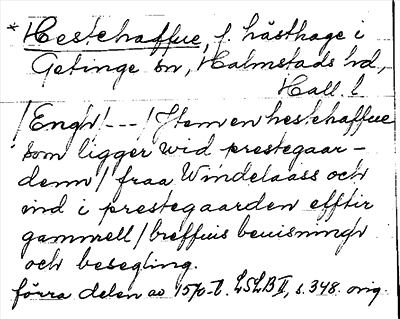 * Hestehaffue, f. hästhage i
Getinge sn, Halmstads hd,
Hall. l
/Engh/---/Item en hestehaffue
som ligger wid prestegaar-
denn/fraa Windelaass och
ind i prestegaarden efftir
gammell/breffuis beuisningh
och besegling.
förra delen av 1570-t. LSLB II, s. 348. orig.